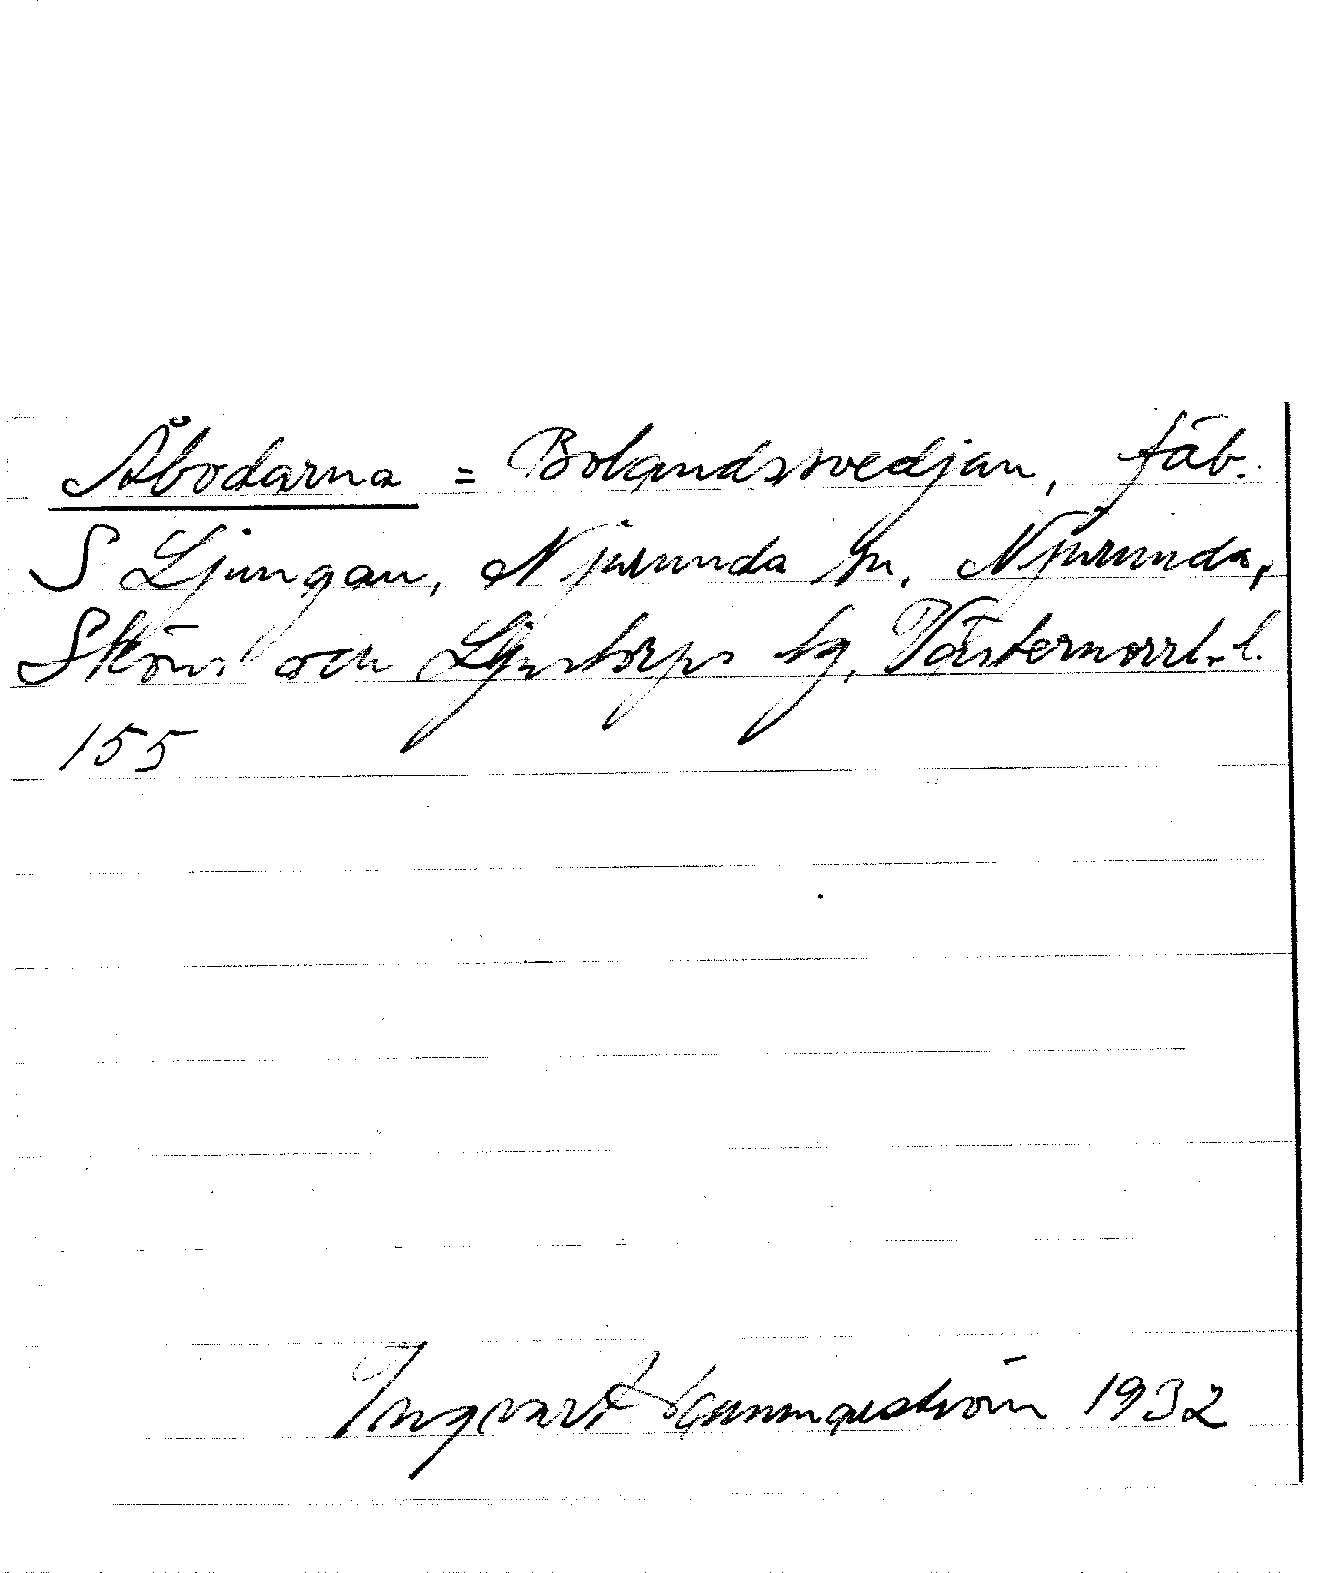 Åbodarna = Bolandssvedjan, fäb.
S Ljungan, Njurunda sn, Njurunda,
Sköns och Ljustorps tg, Västernorrl. l.
155
Ingvart 1932